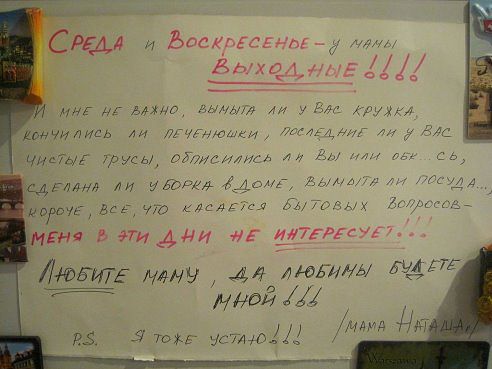 Среда и Воскресенье – у мамы
выходные!!!!
И мне не важно, вымыта ли у вас кружка,
кончились ли печенюшки, последние ли у вас
чистые трусы, обписились ли вы или обк...сь,
сделана ли уборка в доме, вымыта ли посуда...,
короче, все, что касается бытовых вопросов –
меня в эти дни не интересует!!!
Любите маму, да любимы будете
мной!!!
/мама Наташа/
P.S. Я тоже устаю!!!
Warszawa